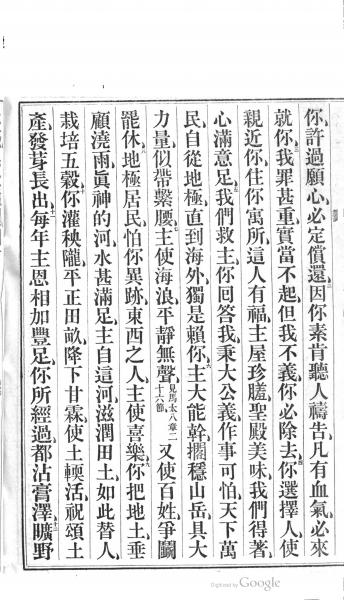 你許過願心必定償還因你素肯聽人禱告凡有血氣必來
就你我罪甚重實當不起但我不義你必除去你選擇人使
親近你住你寓所這人有福主屋珍膳聖殿美味我們得著
心滿意足我們救主你回答我秉大公義作事可怕天下萬
民自從地極直到海外獨是賴你主大能斡擱穩山岳具大
力量似帶繫腰主使海浪平靜無聲見馬太八章二十六節又使百姓爭鬬
罷休地極居民怕你異跡東西之人主使喜樂你把地土垂
顧澆雨眞神的河水甚滿足主自這河滋潤田土如此替人
栽培五穀你灌秧隴平正田畝降下甘霖使土輭活祝頌土
產發芽長出每年主恩相加豐足你所經過都沾膏澤曠野
Digitized by Google